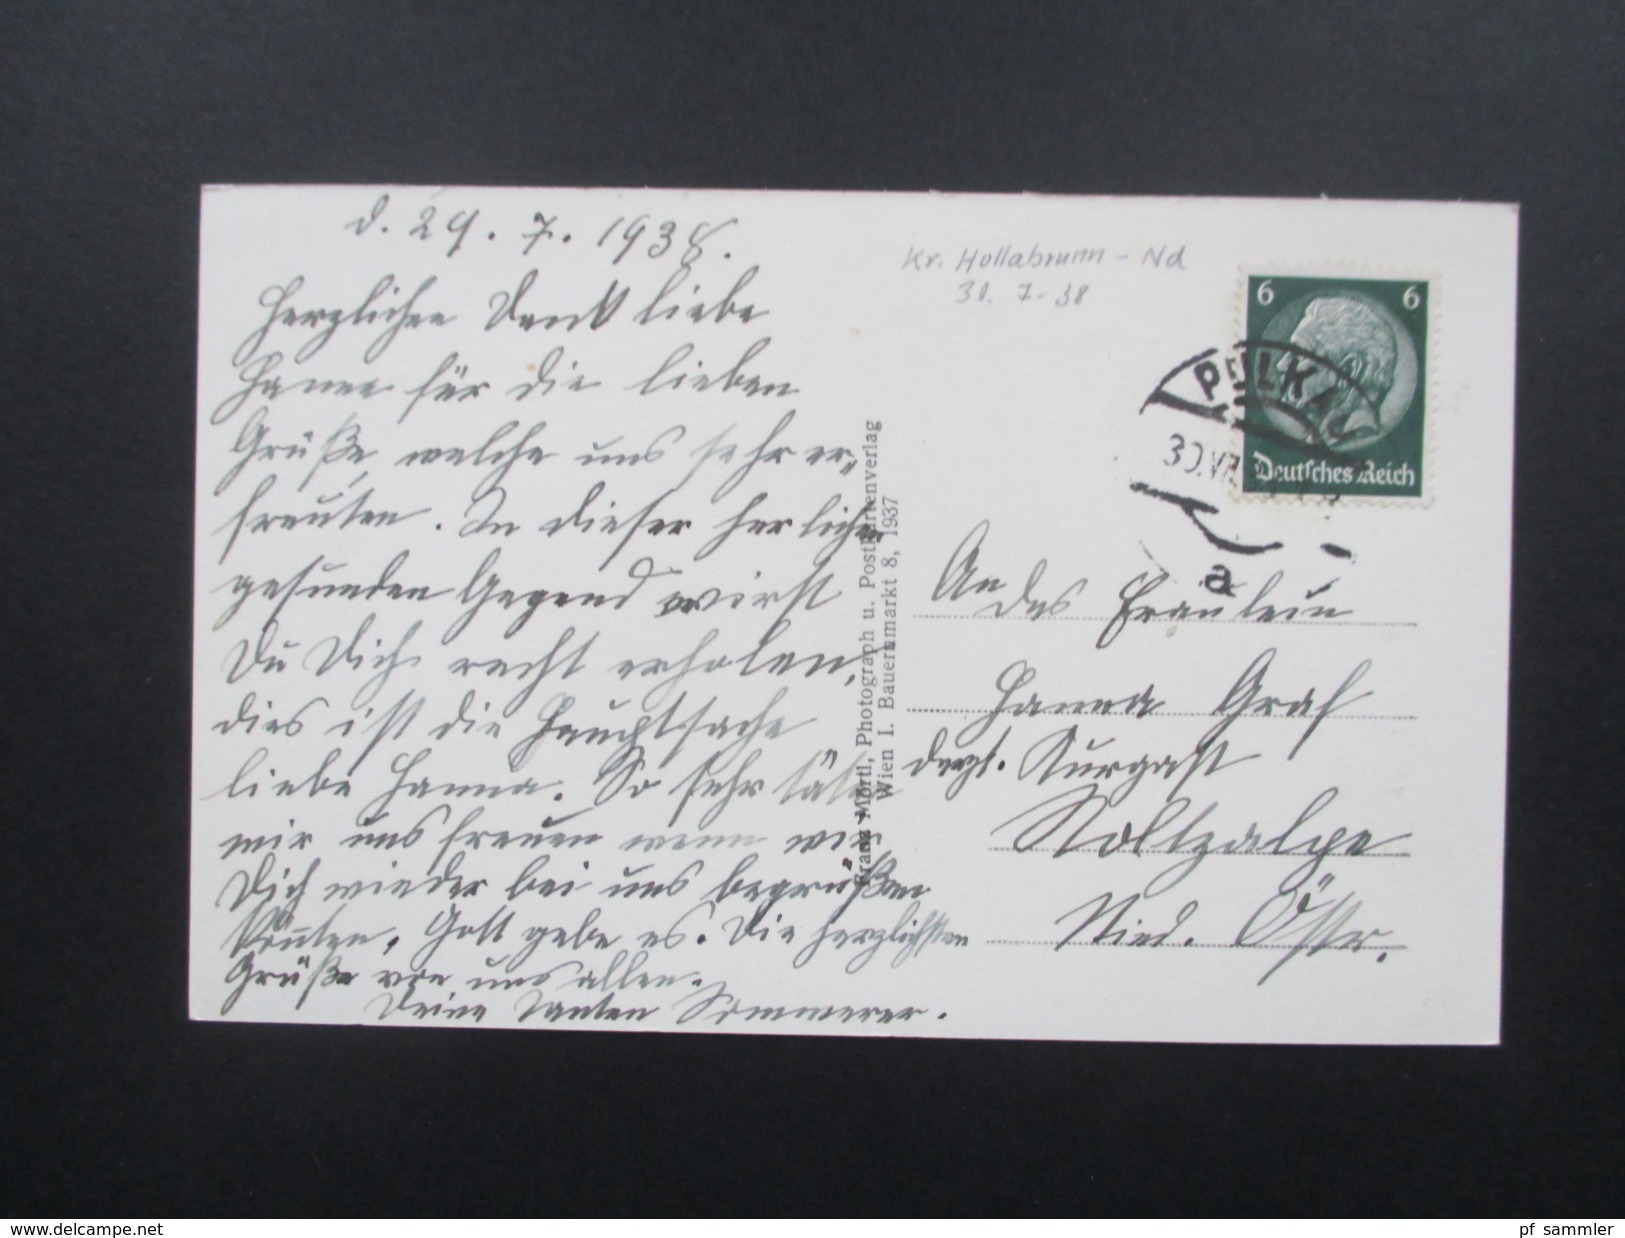 d. 29. 7. 1938.
Herzlichen Dank liebe
Hanna für die lieben
Grüße, welche uns sehr er-
freuten. In dieser herlichen
gesunden Gegend wirst
Du Dich recht erholen,
dies ist die Hauptsache
liebe Hanna. So sehr täten
wir uns freuen wenn wir
Dich wieder bei uns begrüßen
könnten. Gott gebe es. Die herzlichsten
Grüße von uns allen.
Deine Tanten Sommerer.
Franz Mörtl, Photograph u. Postkartenverlag
Wien I. Bauernmarkt 8, 1937
Kr. Hollabrunn - Nd
30. 7. 38
6 6
Deutsches Reich
PULKAU
30.VII
a
An
das Fräulein
Hanna Graf
derzt. Kurgast
Stoltzalpe
Nied. Östr.
www.delcampe.net
pf_sammler